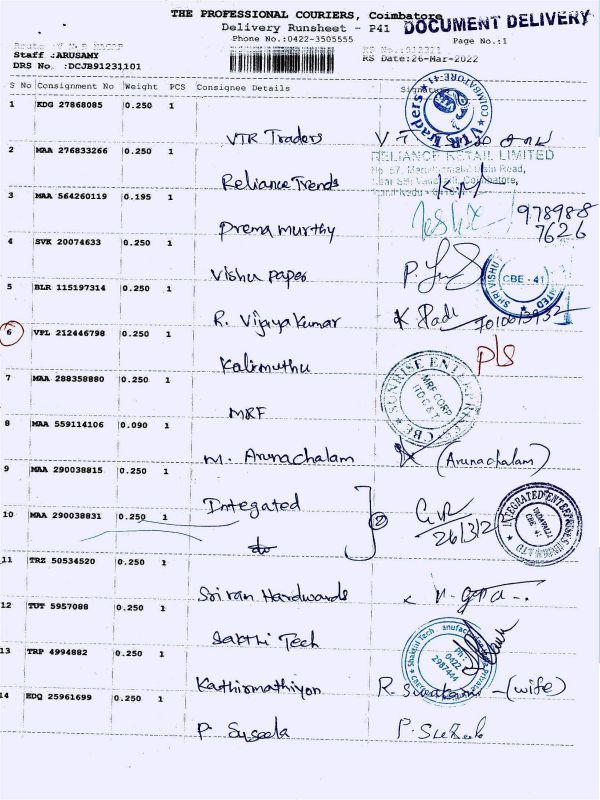 THE PROFESSIONAL COURIERS, Coimbatore
DOCUMENT DELIVERY
Delivery Runsheet - P41
Phone No.:0422-3505555
Page No.:1
Staff :ARUSAMY
RS Date:26-Mar-2022
DRS No. :DCJB91231101
S No Consignment No Weight PCS Consignee Details Signature
1 KDG 27868085 0.250 1
VTR Traders
VTR Traders
COIMBATORE-41
2 MAA 276833266 0.250 1
Reliance Trends
RELIANCE RETAIL LIMITED
3 MAA 564260119 0.195 1
Prema murthy
978988
7626
4 SVK 20074633 0.250 1
Vishu paper
SHRI VISHU
CBE - 41
5 BLR 115197314 0.250 1
R. Vijayakumar
6 VPL 212446798 0.250 1
Kalimuthu
P/S
7 MAA 288358880 0.250 1
MRF
SUNRISE ENTERPRISE
MRF CORP
LTD C & T
CBE
8 MAA 559114106 0.090 1
M. Arunachalam
(Arunachalam)
9 MAA 290038815 0.250 1
Integated
2
26/3/2
INTEGRATED ENTERPRISES
CBE 41
10 MAA 290038831 0.250 1
do
11 TRZ 50534520 0.250 1
Sri ram Hardwards
12 TUT 5957088 0.250 1
Sakthi Tech
Shakthi Tech
Ph :
0422
2987444
13 TRP 4994882 0.250 1
Kathirmathiyon
(wife)
14 EDQ 25961699 0.250 1
P. Suseela